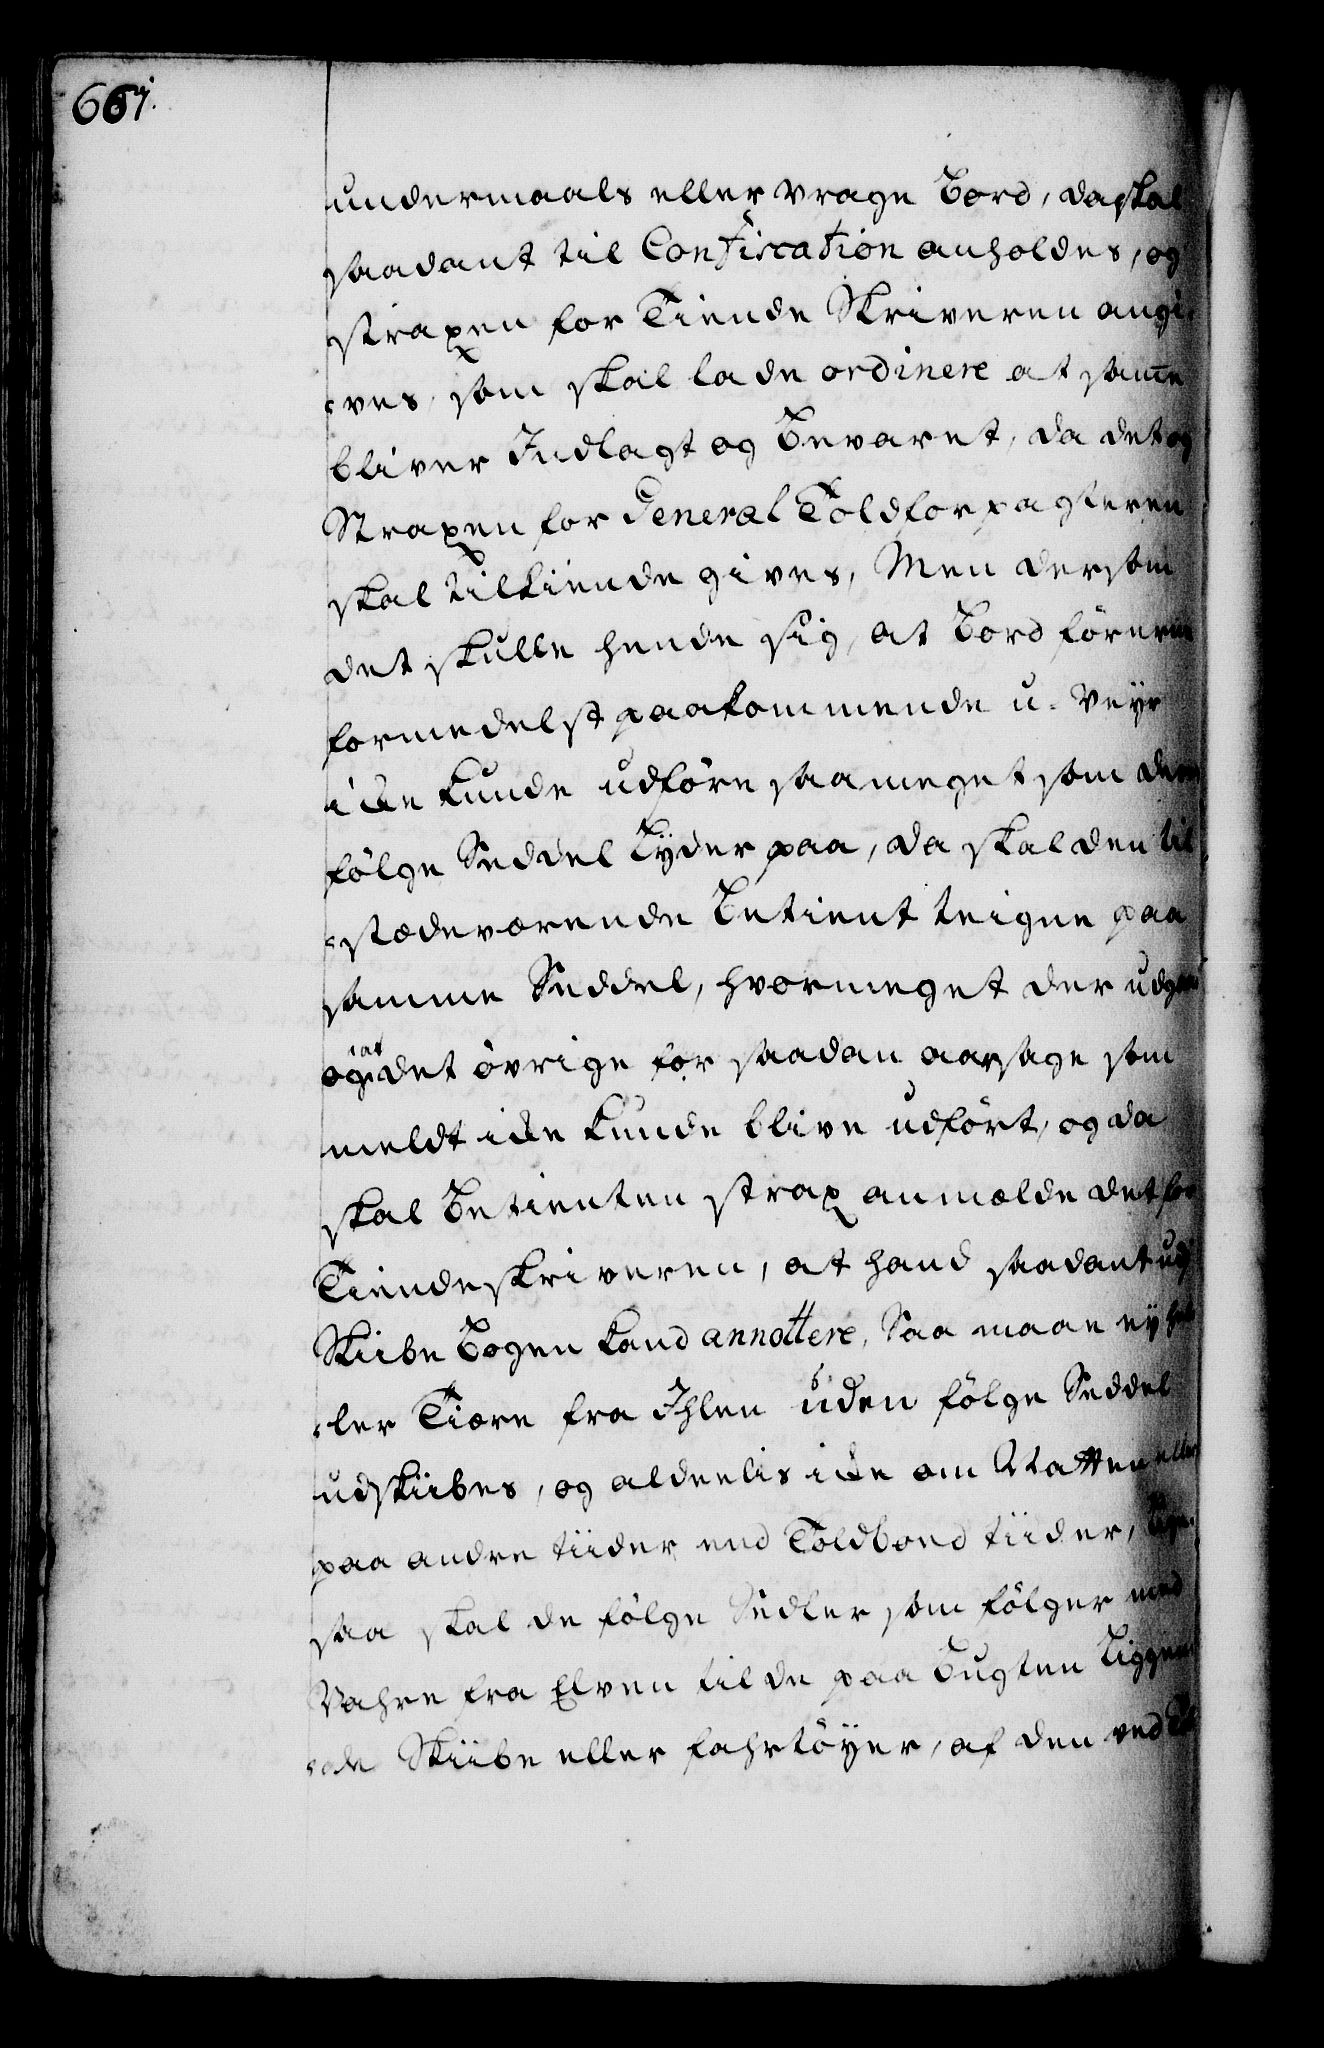 667.
undermaals eller vrage Bord, da skal
saadant til Confiscation anholdes, og
straxen for Tiende Skriveren angi-
-ves, som skal lade ordinere at samme
bliver Indlagt og Bevaret, da det og
Straxen for General Toldforpagteren
skal tilkiende gives, Men dersom
det skulle hende sig, at Bord föreren
formedelst paakommende u-Veyr
icke kunde udföre saameget som den
fölge Seddel Lyder paa, da skal den til
-stædeværende Betient teigne paa
samme Seddel, hvormeget der udgaar
og at det övrige for saadan aarsage som
meldt icke kunde blive udfört, og da
skal Betienten strax anmælde det for
Tiendeskriveren, at hand saadant udj
Skibe Bogen kand annottere, Saa maae ey hel
-ler Tiære fra Ihlen uden fölge Seddel
udskiibes, og aldeelis icke om Natten eller
paa andre tiider end Toldboed tiider, Lige-
saa skal de fölge Sedler som fölger med
Vahre fra Elven til de paa Bugten Liggen-
-de Skiibe eller fahrtöyer, af den ved